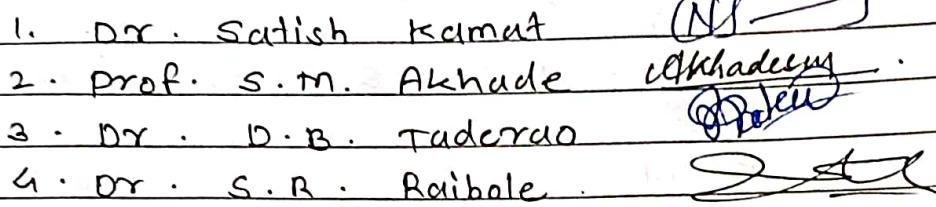 1. Dr. Satish Kamat
2. Prof. S.M. Akhade
3. Dr. D.B. Taderao
4. Dr. S.R. Raibole.